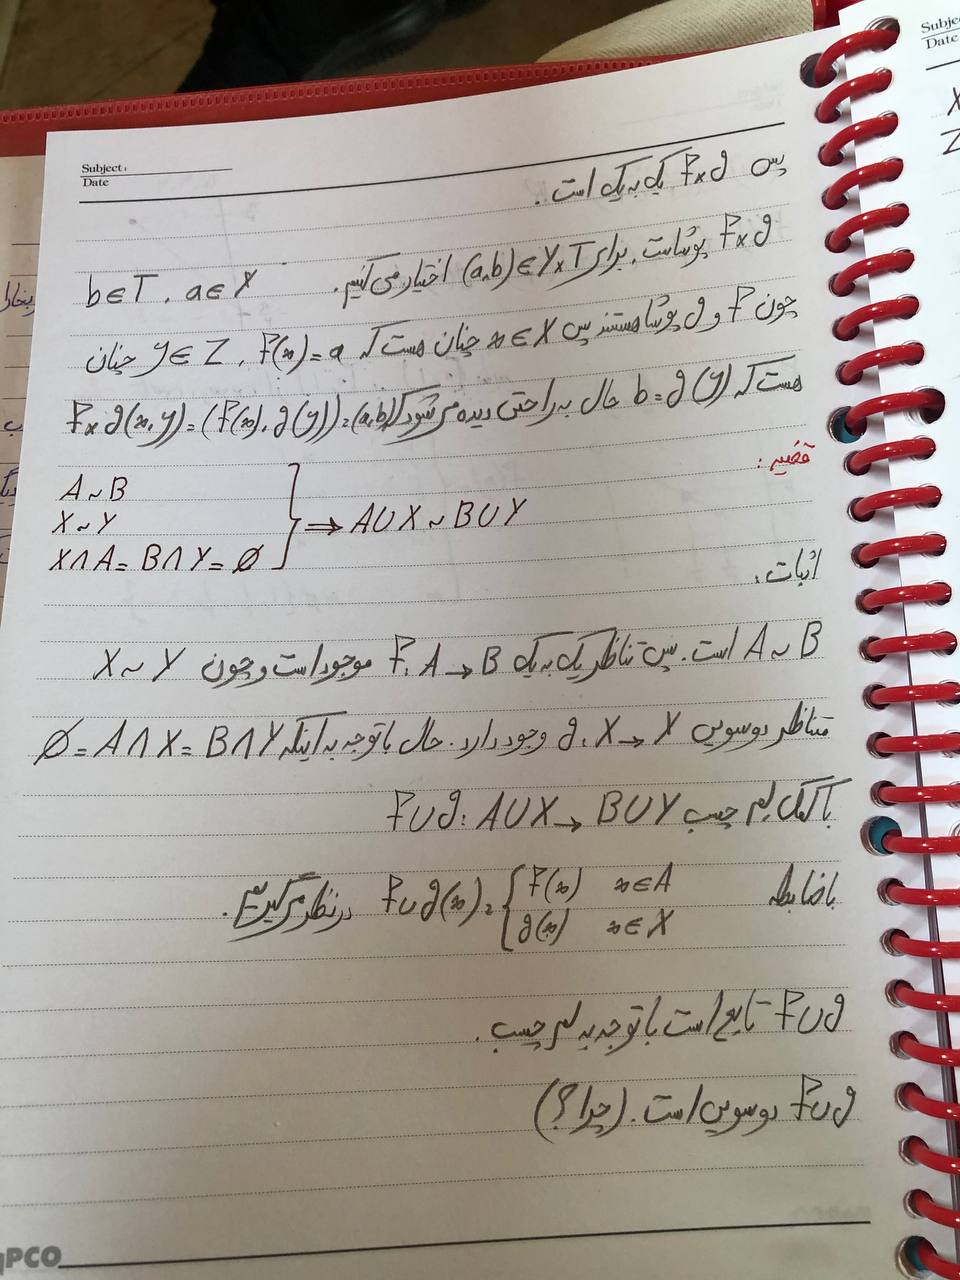 Subject:
Date
پس f×g یک به یک است.
f×g پوشاست، برای (a,b)∈Y×T اختیار می‌کنیم. b∈T , a∈X
چون f و g پوشا هستند پس x∈X چنان هست که f(x)=a , y∈Z چنان
هست که b=g(y) حال به راحتی دیده می‌شود که f×g(x,y)=(f(x),g(y))=(a,b)
قضیه:
A~B
X~Y
X∩A=B∩Y=∅
} ⇒ A∪X~B∪Y
اثبات:
A~B است. پس تناظر یک به یک f: A→B موجود است و چون X~Y
تناظر دوسویی g: X→Y وجود دارد. حال با توجه به اینکه ∅=A∩X=B∩Y
با کمک لم چسب f∪g: A∪X→B∪Y
باضابطه f∪g(x)={f(x) x∈A
g(x) x∈X در نظر می‌گیریم.
f∪g تابع است با توجه به لم چسب.
f∪g دوسویی است. (چرا؟)
PCO
Subje
Date
X
Z